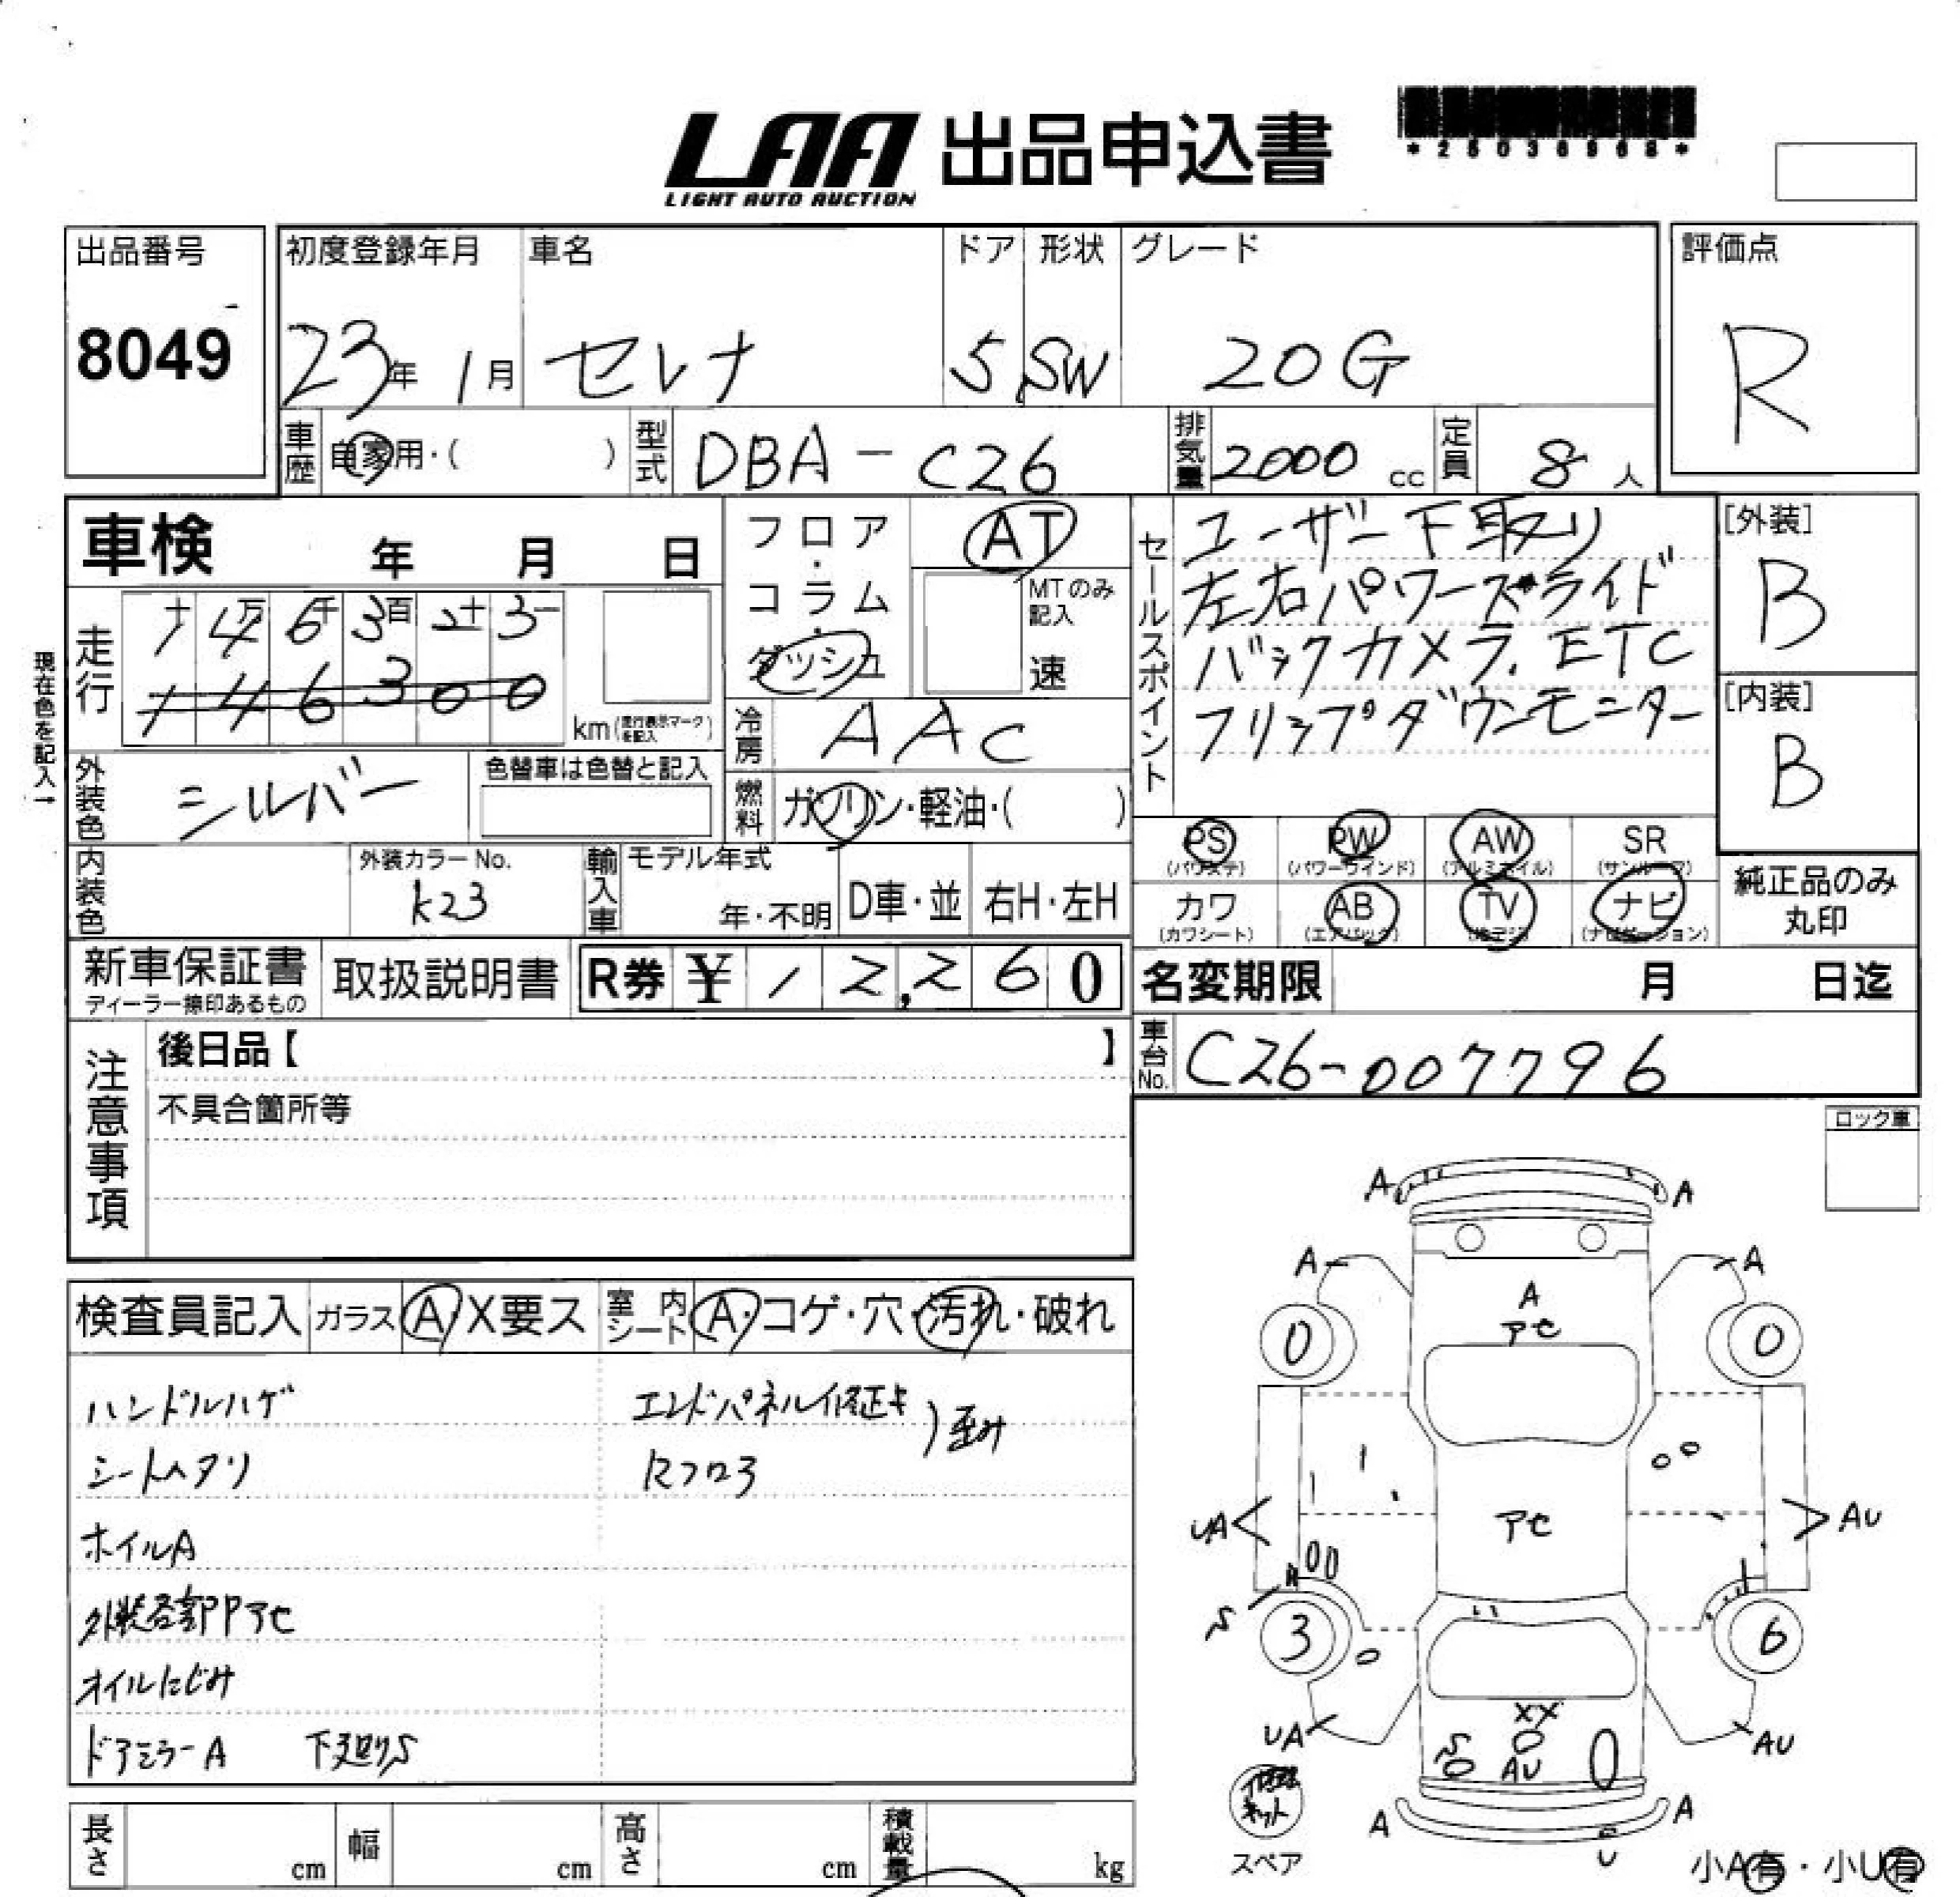 LAA 出品申込書
LIGHT AUTO AUCTION
出品番号 初度登録年月 車名 ドア 形状 グレード 評価点
8049 23年 1月 セレナ 5 SW 20G R
車歴 自家用・( ) 型式 DBA-C26 排気量 2000 cc 定員 8 人
車検 年 月 日
フロア・コラム・ダッシュ
AT
MTのみ記入
速
セールスポイント
ユーザー下取り
左右パワースライド
バックカメラ. ETC
フリップダウンモニター
[外装]
B
[内装]
B
現在色を記入→
走行
十 万 千 百 十 一
4 6 3 2 3
1 4 6 3 0 0
km (走行表示マークを記入)
冷房 AAC
外装色 シルバー 色替車は色替と記入
燃料 ガソリン・軽油・( )
PS PW AW SR
(パワステ) (パワーウインド) (アルミホイル) (サンルーフ)
カワ AB TV ナビ
(カワシート) (エアバック) (地デジ) (ナビゲーション)
純正品のみ
丸印
内装色 外装カラーNo. 輸入車 モデル年式
k23 年・不明 D車・並 右H・左H
新車保証書 取扱説明書 R券 ¥ 12,260
ディーラー捺印あるもの
名変期限 月 日迄
注意事項
後日品【 】
不具合箇所等
車台No. C26-007796
ロック車
検査員記入 ガラス A・X要ス 室内シート A・コゲ・穴・汚れ・破れ
ハンドルハゲ エンドパネル修正キ
シートヘタリ Rフロア ) 歪み
ホイルA
外装各部PPアセ
オイルにじみ
ドアミラーA 下廻りS
A A
A A
A
アセ
0 0
UA アセ AU
S
3 6
XX
UA S AU AU
A A
U
修理キット
スペア
小A有・小U有
長さ cm 幅 cm 高さ cm 積載量 kg